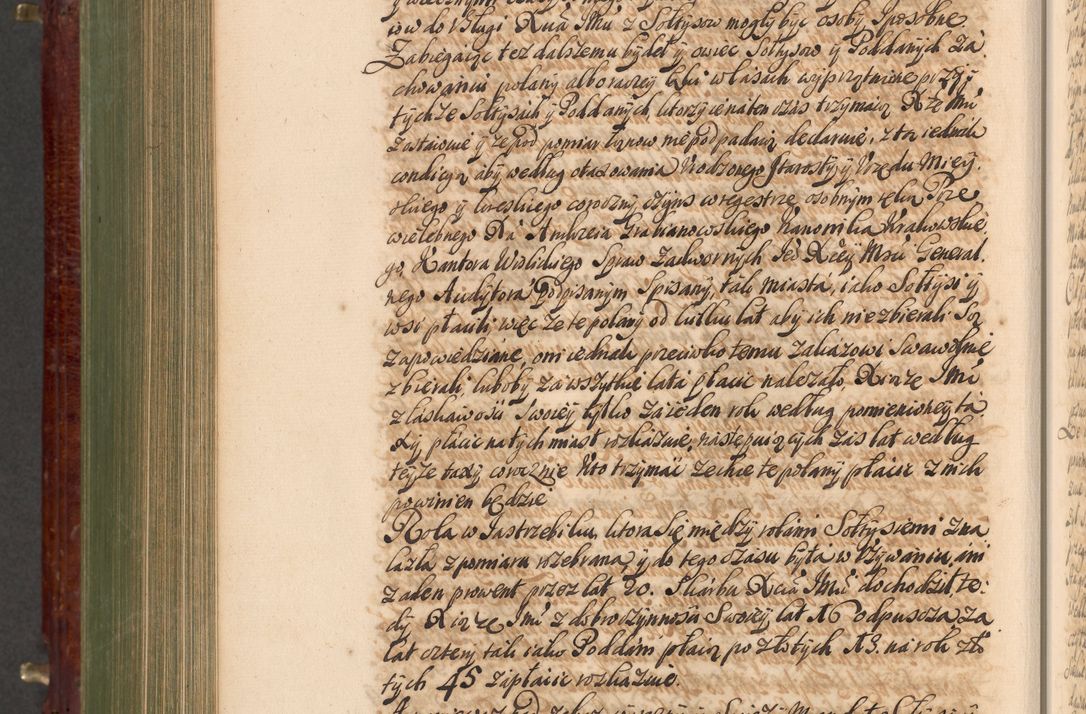 iow do Usługi Xcia Jmci z Sołtysow mogły być osoby sposobne
Zabiegaiąc też dalszemu bydeł y owiec Sołtysow y Poddanych za
chowaniu polany albo raczey łąki w lasach wyprzątnione przy
tychże Sołtysach y Poddanych, ktorzy ie na ten czas trzymaią Xże Jmć
zostawuie y że pod pomiar łanow nie podpadaią declaruie, z tą iednak
condicyą aby według otaxowania Urodzonego Starosty y Urzędu Miey
skiego y coroczny czynsz w regestrze osobnym ręką Prze
wielebnego Xa Andrzeia Grabianowskiego Kanonika Krakowskie
go, Kantora Wislickiego Spraw Zadwornych Jeo Xcey Mci General
nego Audytora Podpisanym Spisany, tak miasta, iako Sołtysi y
wsi płacili, więc że te polany od kilku lat aby ich nie zbierali są
zapowiedziane, oni iednak przeciwko temu zakazowi swawolnie
zbierali, luboby za wszytkie lata płacić należało, Xiąże Jmć
z łaskawości Swoiey tylko za ieden rok według pomienioney ta
xy, płacic natychmiast rozkazuie, następuiących zaś lat według
teyże taxy corocznie kto trzymać zechce te polany płacić z nich
powinien będzie
Rola w Jastrzebiku, ktora się między rolami Sołtysiemi zna
lazła z pomiaru rozebrana, y do tego czasu była w używaniu, ani
żaden prowent przez lat 20. Skarbu Xcia Jmci dochodził, te
dy Xiąże Jmć z dobroczynności Swoiey lat 16 odpuszcza, za
lat cztery tak iako Poddani płacą po złotych 13. na rok zło
tych 45 zapłacić rozkazuie.